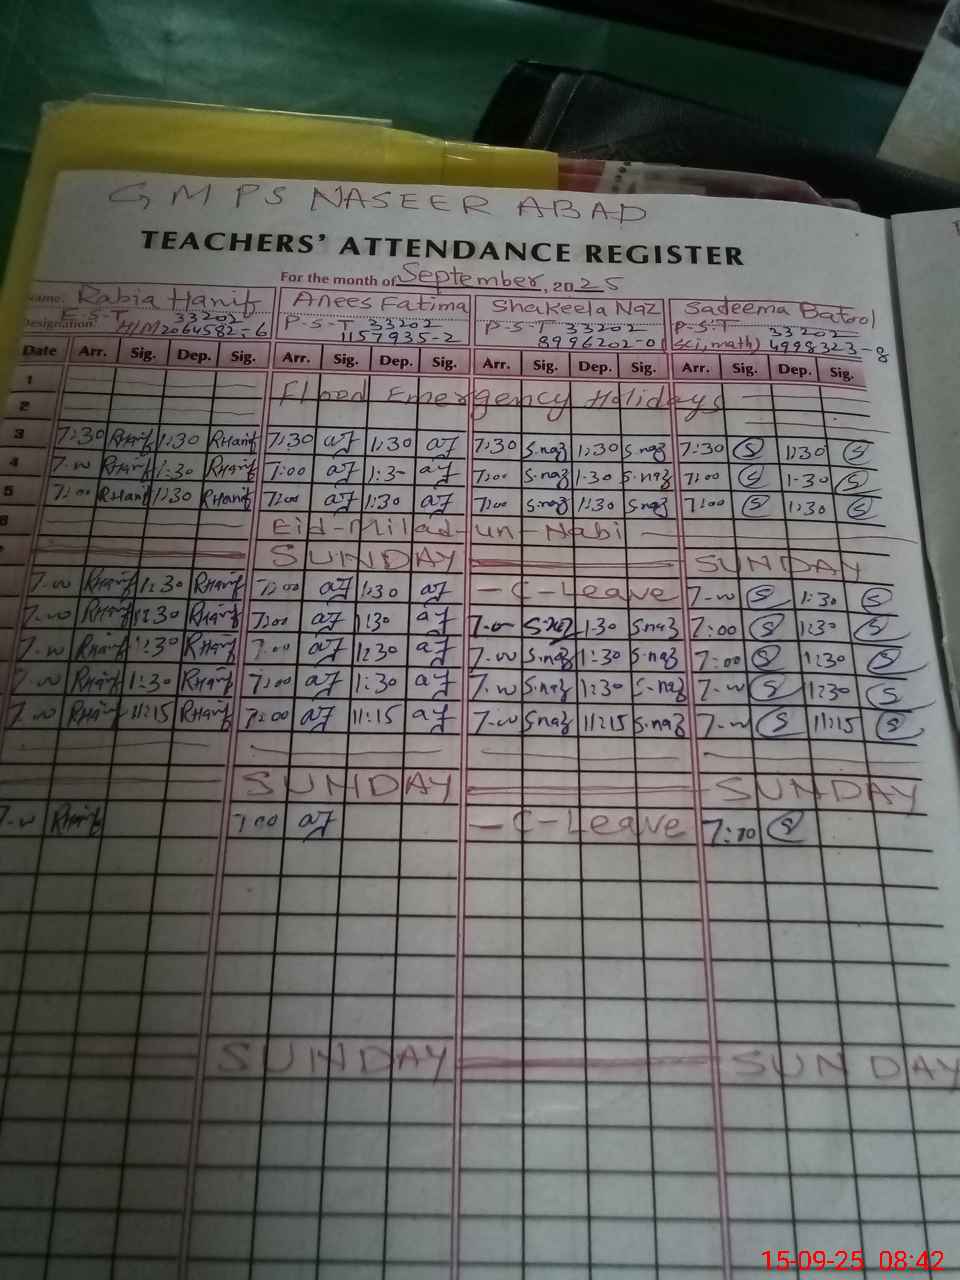 GMPS NASEER ABAD
TEACHERS' ATTENDANCE REGISTER
For the month of September, 2025
Name: Rabia Hanif Anees Fatima Shakeela Naz Sadeema Batool
Designation: E-S-T H/M 33202 2064582-6 P-S-T 33202 1157935-2 P-S-T 33202 8996202-0 P-S-T (sci, math) 33202 4998323-8
Date Arr. Sig. Dep. Sig. Arr. Sig. Dep. Sig. Arr. Sig. Dep. Sig. Arr. Sig. Dep. Sig.
1
Flood Emergency Holidays
2
3 7:30 RHanif 1:30 RHanif 7:30 af 1:30 af 7:30 S.naz 1:30 S.naz 7:30 S 1:30 S
4 7:00 RHanif 1:30 RHanif 7:00 af 1:30 af 7:00 S.naz 1:30 S.naz 7:00 S 1:30 S
5 7:00 RHanif 1:30 RHanif 7:00 af 1:30 af 7:00 S.naz 1:30 S.naz 7:00 S 1:30 S
6 Eid-Milad-un-Nabi
SUNDAY SUNDAY
7:00 RHanif 1:30 RHanif 7:00 af 1:30 af -C-Leave 7:00 S 1:30 S
7:00 RHanif 1:30 RHanif 7:00 af 1:30 af 7:00 S.naz 1:30 S.naz 7:00 S 1:30 S
7:00 RHanif 1:30 RHanif 7:00 af 1:30 af 7:00 S.naz 1:30 S.naz 7:00 S 1:30 S
7:00 RHanif 1:30 RHanif 7:00 af 1:30 af 7:00 S.naz 1:30 S.naz 7:00 S 1:30 S
7:00 RHanif 11:15 RHanif 7:00 af 11:15 af 7:00 S.naz 11:15 S.naz 7:00 S 11:15 S
SUNDAY SUNDAY
7:00 RHanif 7:00 af -C-Leave 7:00 S
SUNDAY SUNDAY
15-09-25 08:42